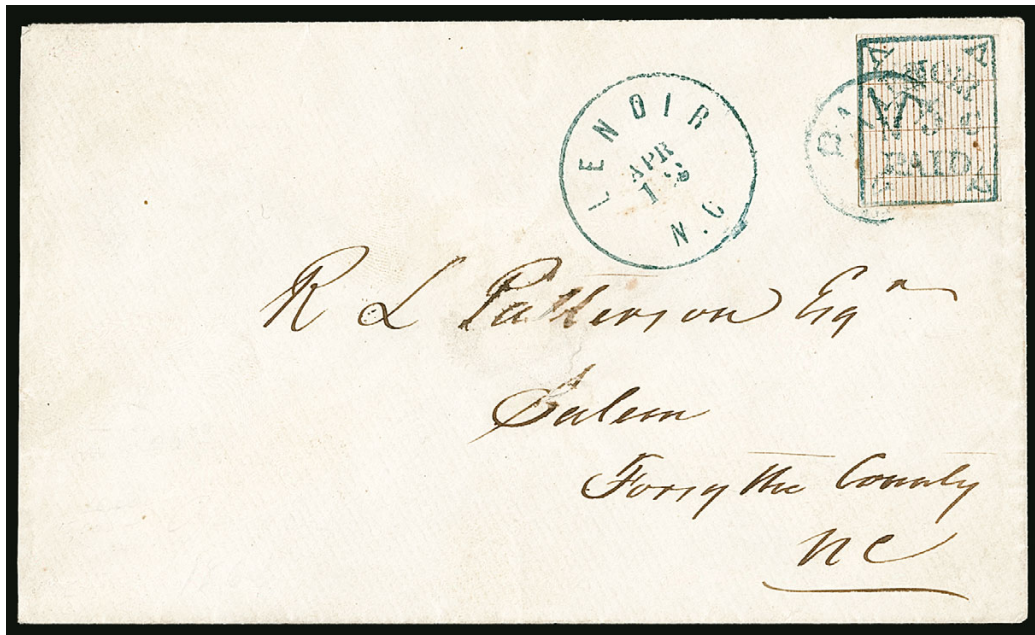 LENOIR
APR
N.C
PAID
5
PAID
R L Patterson Esqr
Salem
Forsythe County
NC